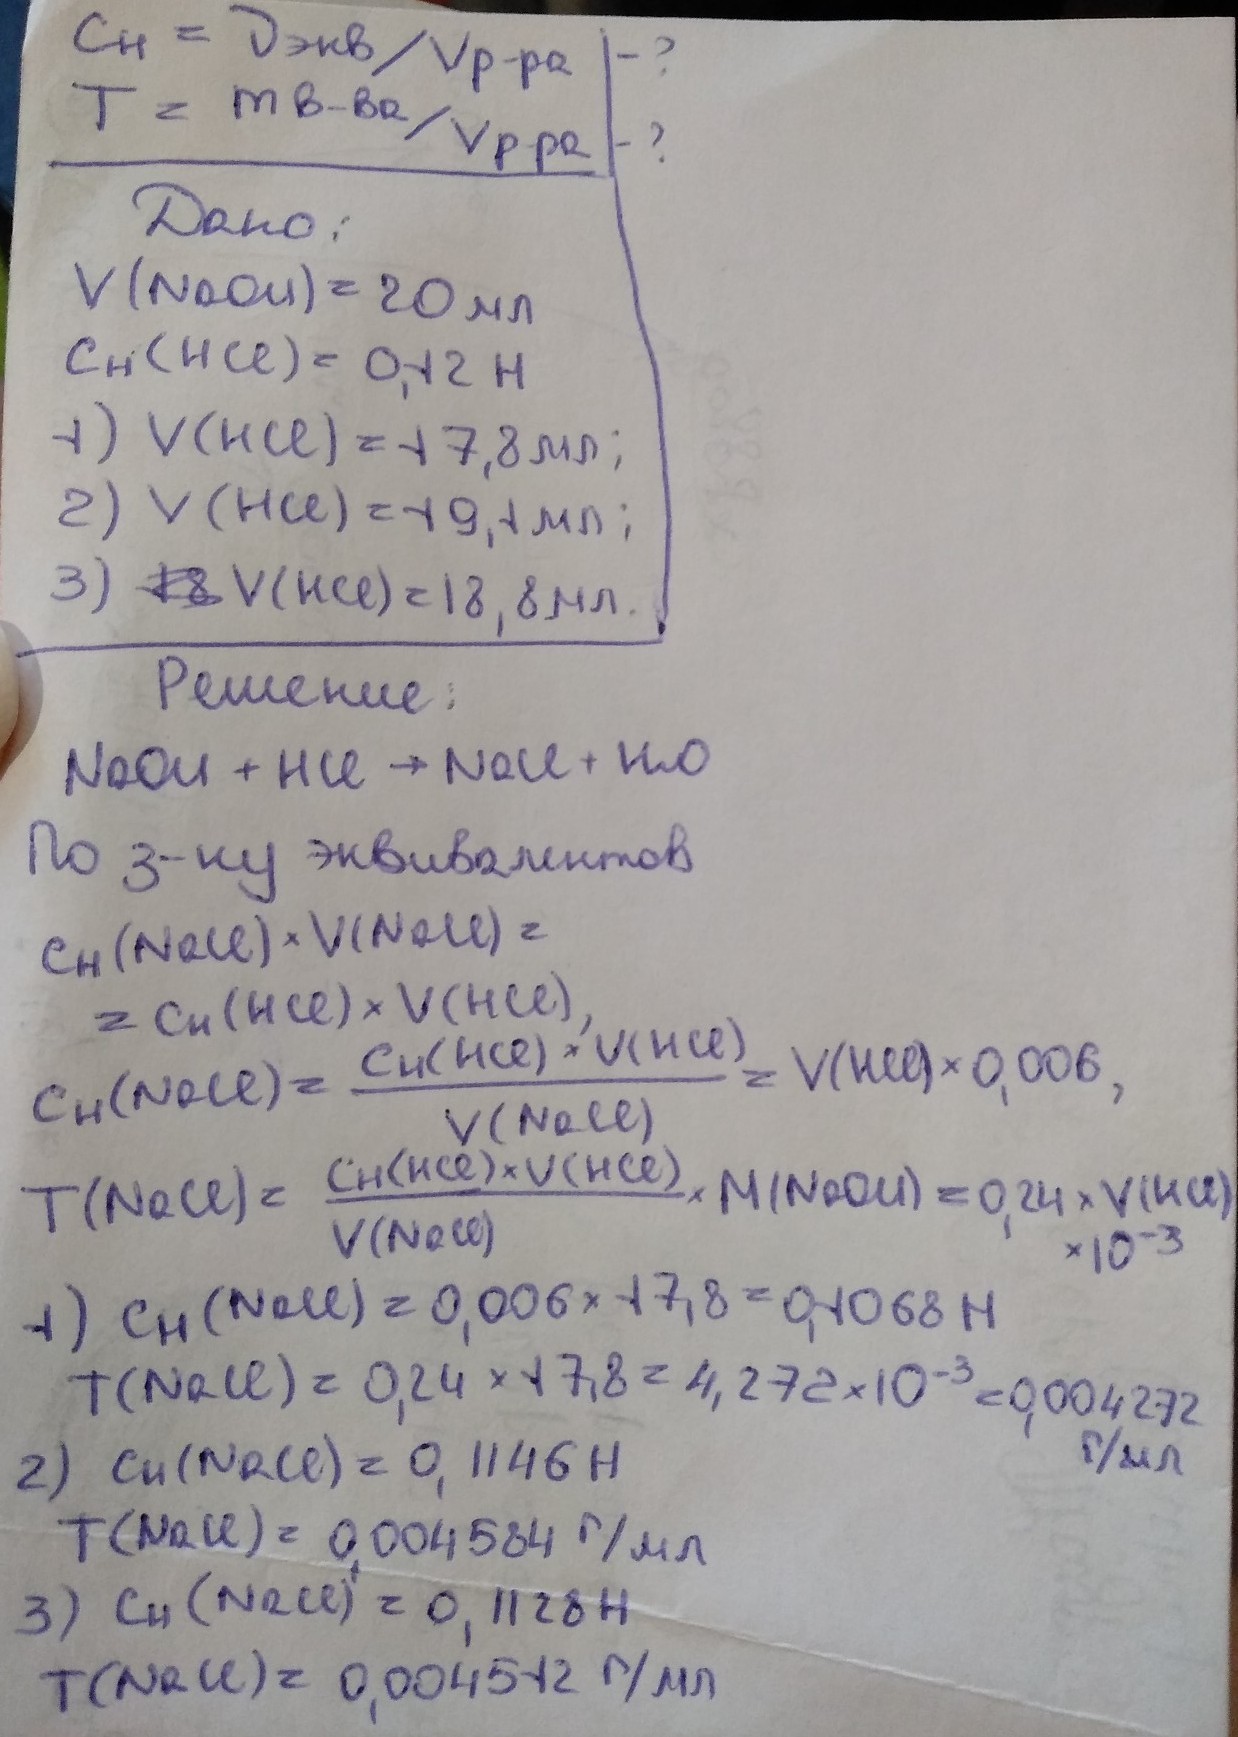 Cн = νэкв/Vр-ра -?
T = mв-ва/Vр-ра -?
Дано:
V(NaOH) = 20 мл
Cн(HCl) = 0,12 Н
1) V(HCl) = 17,8 мл;
2) V(HCl) = 19,1 мл;
3) V(HCl) = 18,8 мл.
Решение:
NaOH + HCl → NaCl + H₂O
По з-ну эквивалентов
Cн(NaCl) × V(NaCl) =
= Cн(HCl) × V(HCl),
Cн(NaCl) = Cн(HCl) × V(HCl) / V(NaCl) = V(HCl) × 0,006,
T(NaCl) = Cн(HCl) × V(HCl) / V(NaCl) × M(NaOH) = 0,24 × V(HCl)
× 10⁻³
1) Cн(NaCl) = 0,006 × 17,8 = 0,1068 Н
T(NaCl) = 0,24 × 17,8 = 4,272 × 10⁻³ = 0,004272
г/мл
2) Cн(NaCl) = 0,1146 Н
T(NaCl) = 0,004584 г/мл
3) Cн(NaCl) = 0,1128 Н
T(NaCl) = 0,004512 г/мл